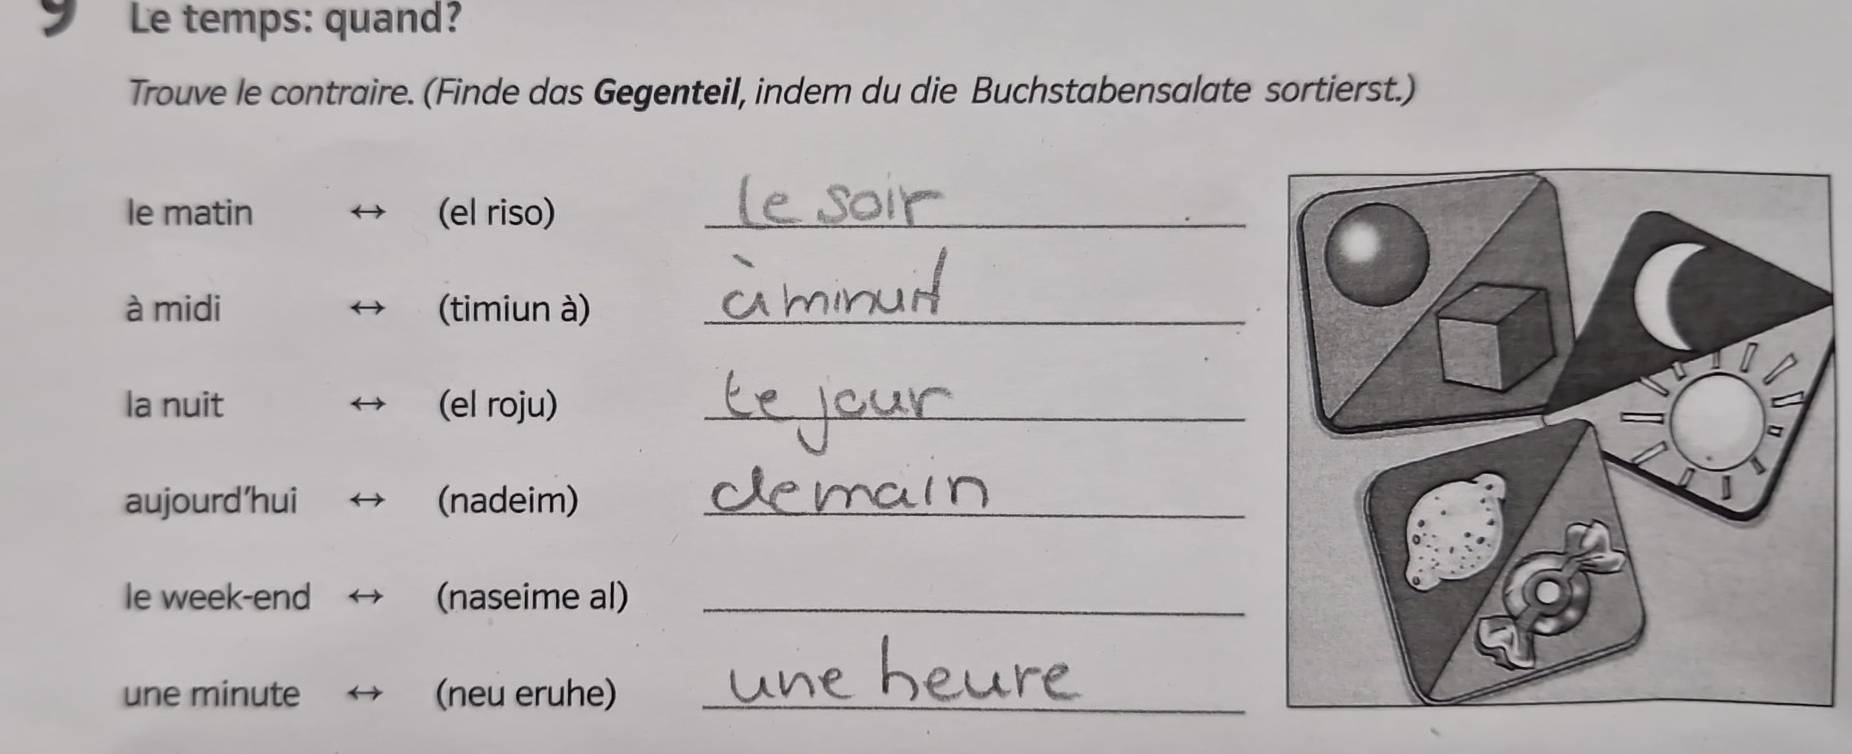 9 Le temps: quand?
Trouve le contraire. (Finde das Gegenteil, indem du die Buchstabensalate sortierst.)
le matin ↔ (el riso) le soir
à midi ↔ (timiun à) à minuit
la nuit ↔ (el roju) le jour
aujourd'hui ↔ (nadeim) demain
le week-end ↔ (naseime al)
une minute ↔ (neu eruhe) une heure